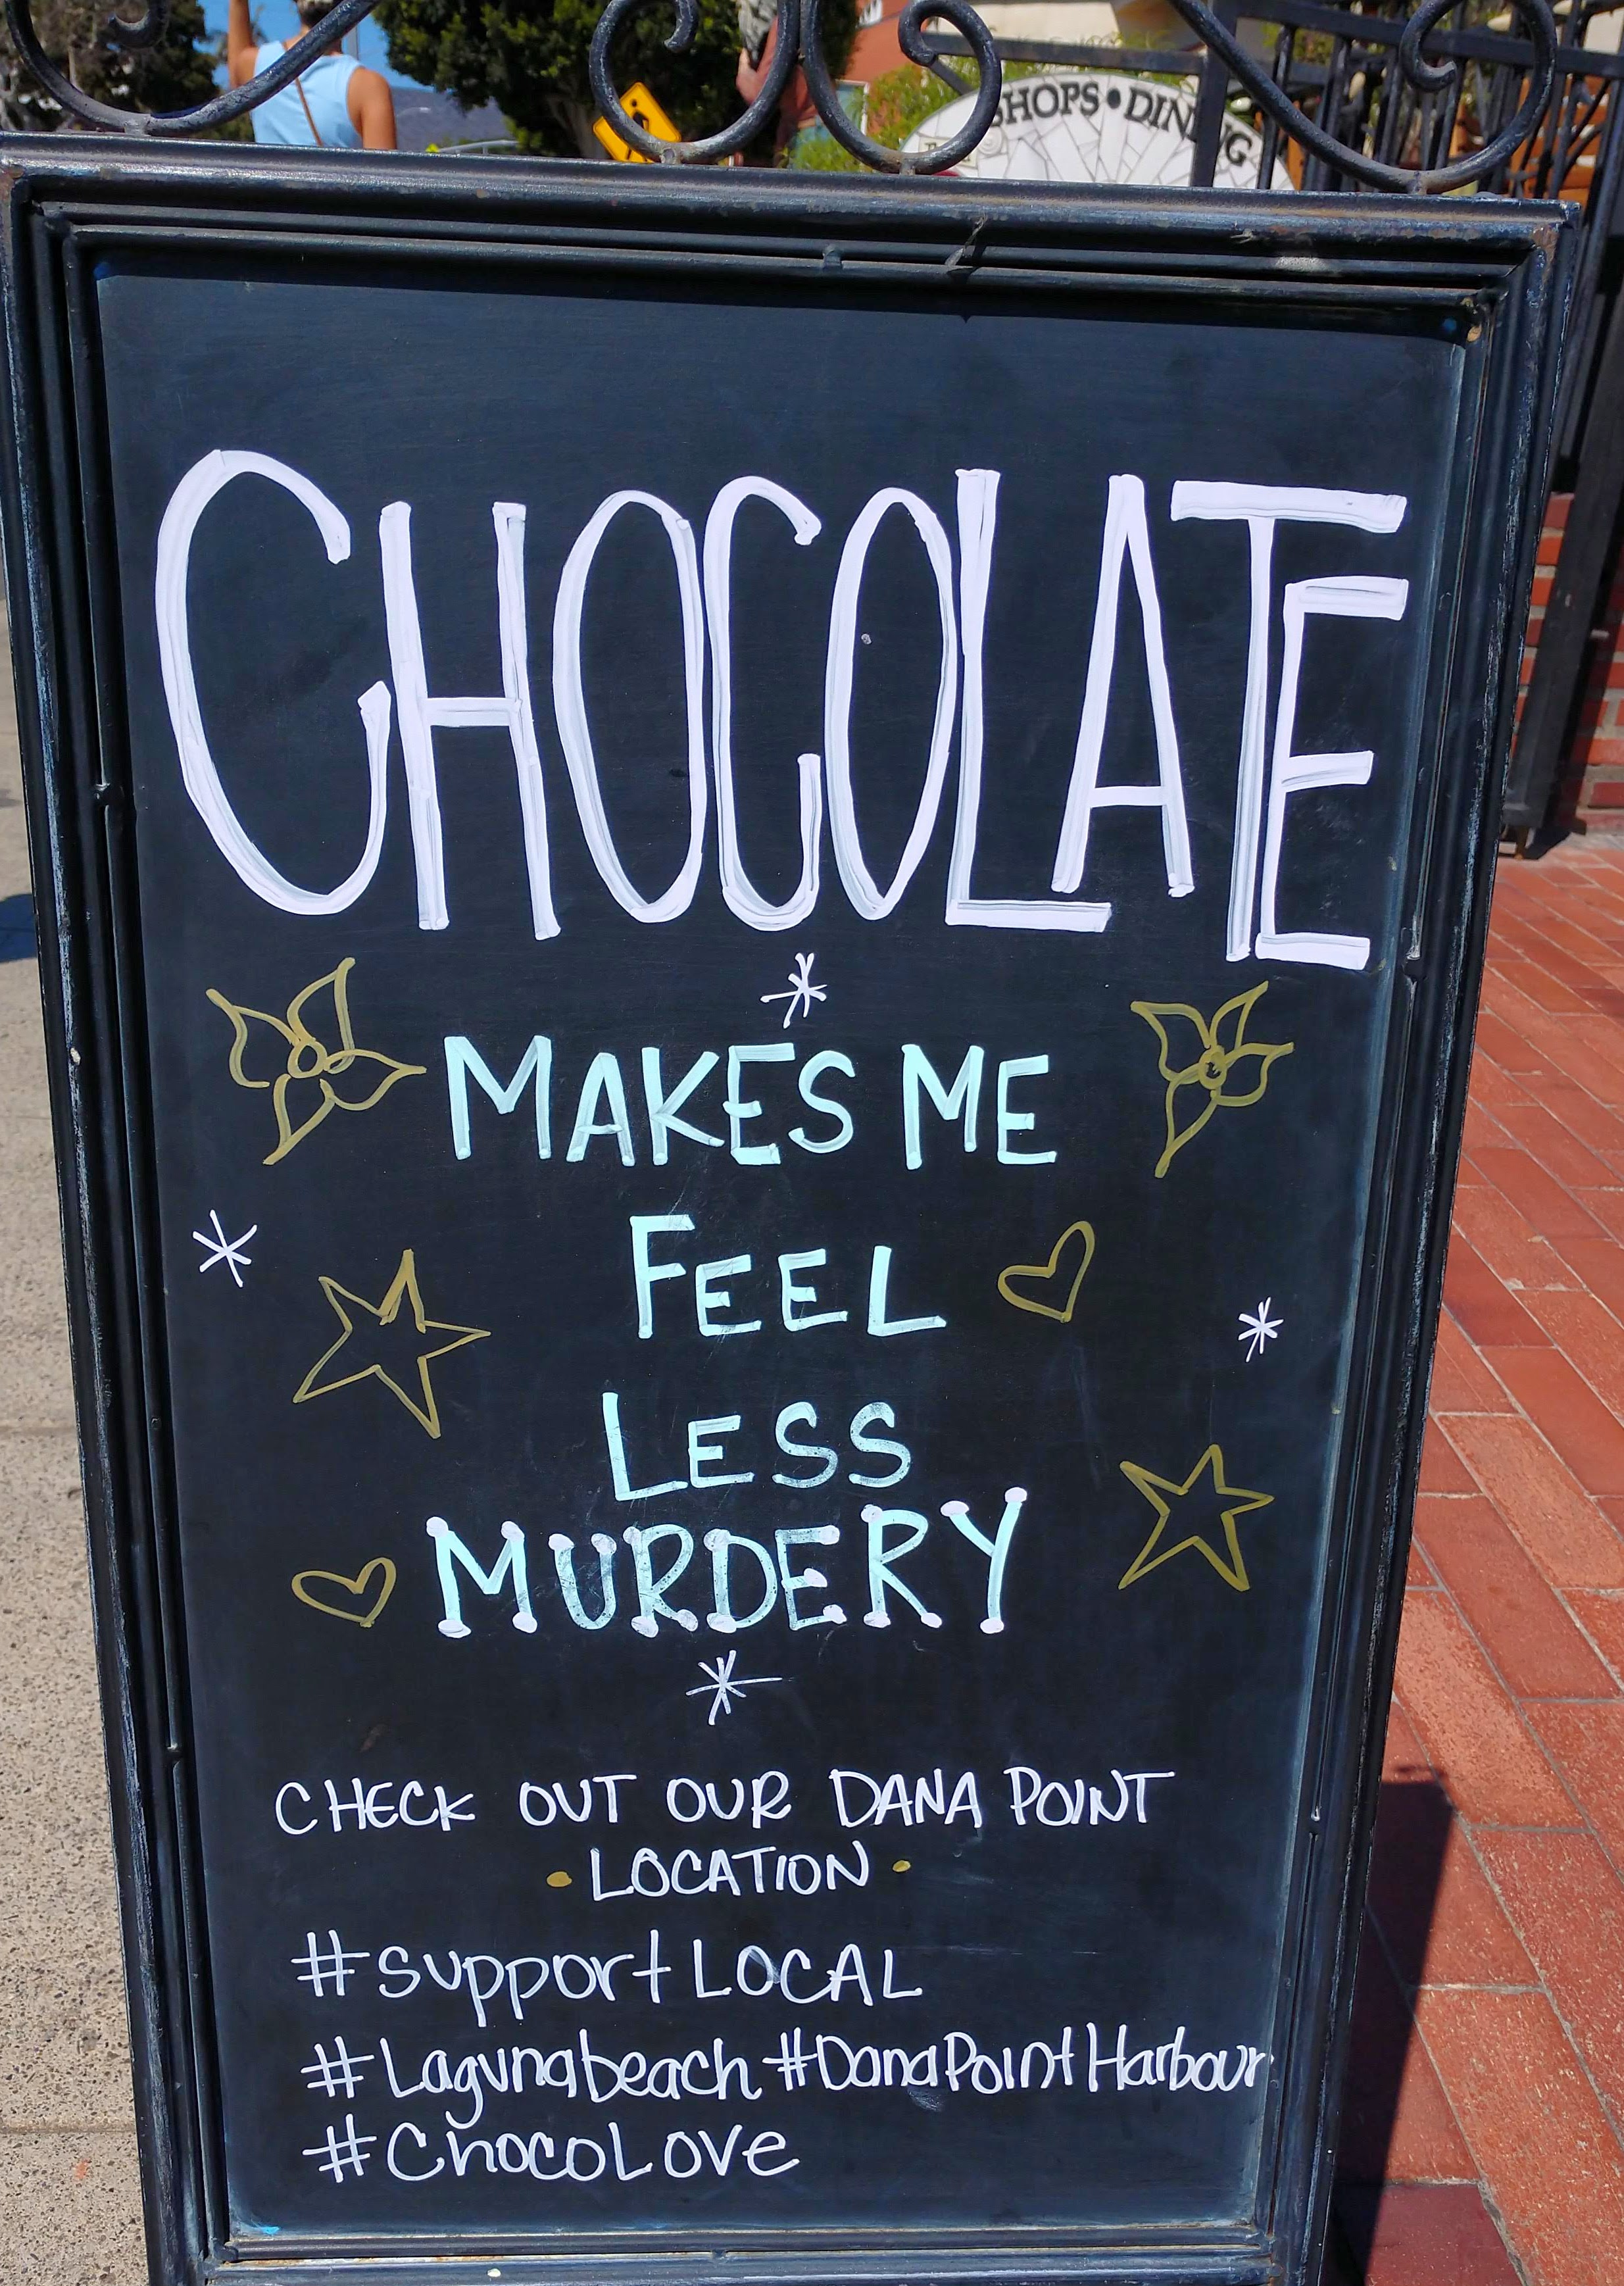 SHOPS • DINING
CHOCOLATE
MAKES ME
FEEL
LESS
MURDERY
CHECK OUT OUR DANA POINT
• LOCATION •
#supportLOCAL
#Lagunabeach #DanaPointHarbour
#ChocoLove